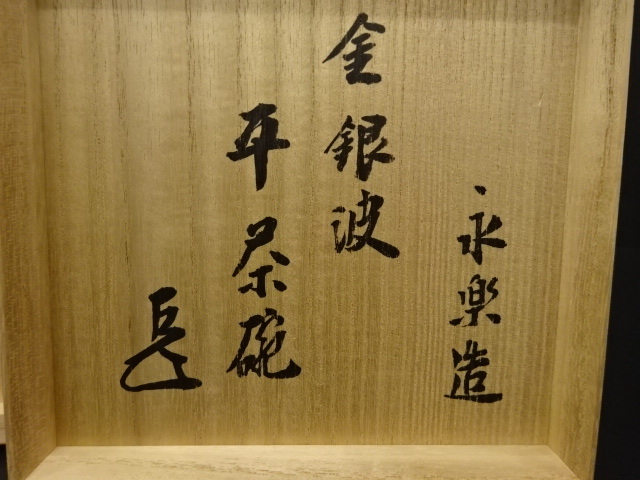 永楽造
金銀波
平茶碗